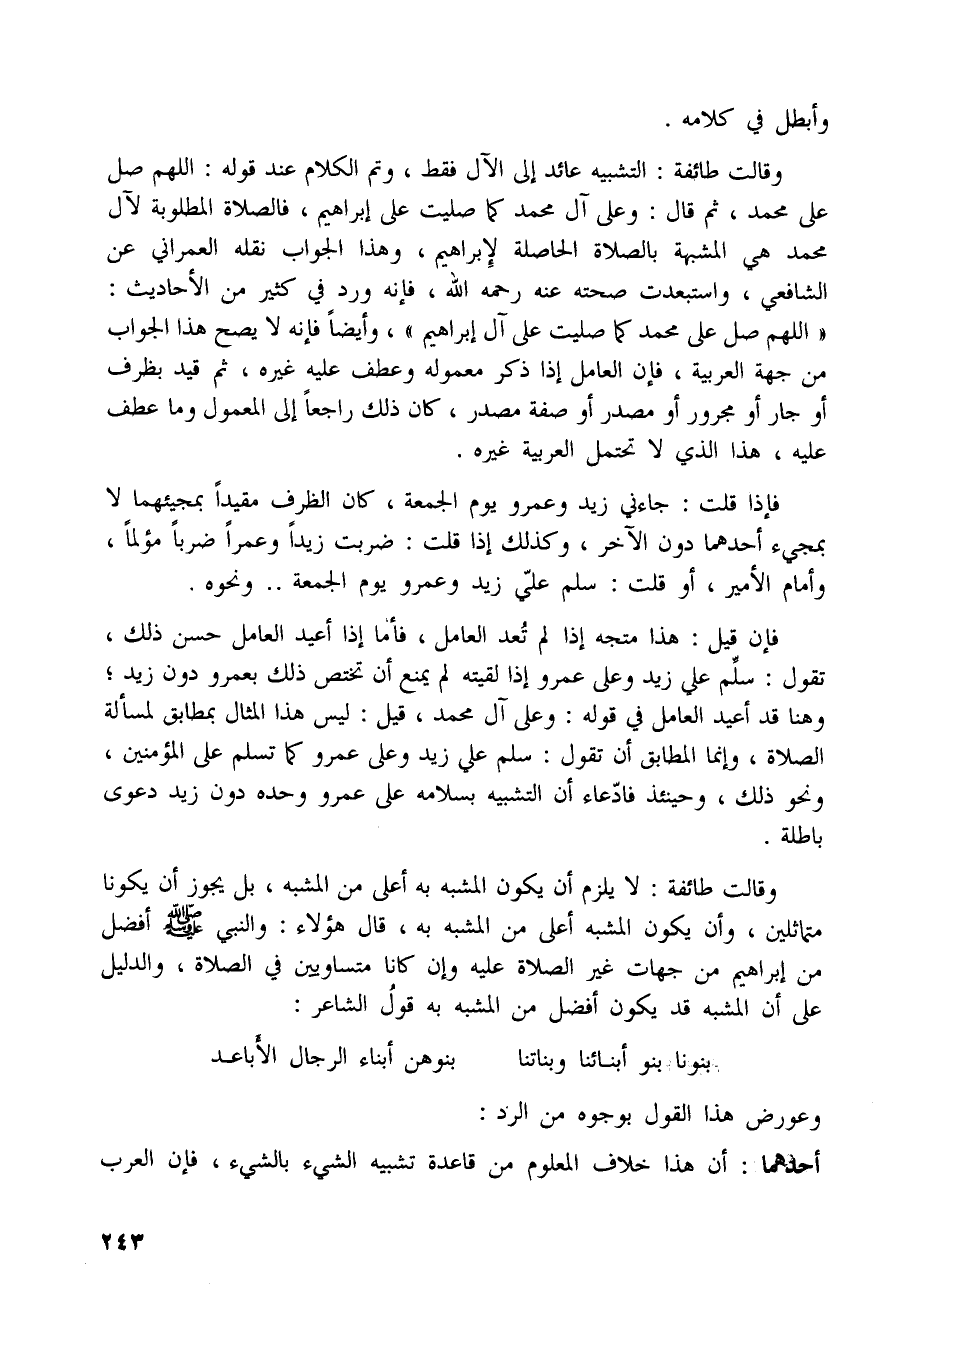 وأبطل في كلامه .
وقالت طائفة : التشبيه عائد إلى الآل فقط ، وتم الكلام عند قوله : اللهم صل
على محمد ، ثم قال : وعلى آل محمد كما صليت على إبراهيم ، فالصلاة المطلوبة لآل
محمد هي المشبهة بالصلاة الحاصلة لإبراهيم ، وهذا الجواب نقله العمراني عن
الشافعي ، واستبعدت صحته عنه رحمه الله ، فإنه ورد في كثير من الأحاديث :
« اللهم صل على محمد كما صليت على آل إبراهيم » ، وأيضاً فإنه لا يصح هذا الجواب
من جهة العربية ، فإن العامل إذا ذكر معموله وعطف عليه غيره ، ثم قيد بظرف
أو جار أو مجرور أو مصدر أو صفة مصدر ، كان ذلك راجعاً إلى المعمول وما عطف
عليه ، هذا الذي لا تحتمل العربية غيره .
فإذا قلت : جاءني زيد وعمرو يوم الجمعة ، كان الظرف مقيداً بمجيئهما لا
بمجيء أحدهما دون الآخر ، وكذلك إذا قلت : ضربت زيداً وعمراً ضرباً مؤلماً ،
وأمام الأمير ، أو قلت : سلم عليّ زيد وعمرو يوم الجمعة .. ونحوه .
فإن قيل : هذا متجه إذا لم تُعد العامل ، فأما إذا أعيد العامل حسن ذلك ،
تقول : سلِّم علي زيد وعلى عمرو إذا لقيته لم يمنع أن تختص ذلك بعمرو دون زيد ؛
وهنا قد أعيد العامل في قوله : وعلى آل محمد ، قيل : ليس هذا المثال بمطابق لمسألة
الصلاة ، وإنما المطابق أن تقول : سلم علي زيد وعلى عمرو كما تسلم على المؤمنين ،
ونحو ذلك ، وحينئذ فادّعاء أن التشبيه بسلامه على عمرو وحده دون زيد دعوى
باطلة .
وقالت طائفة : لا يلزم أن يكون المشبه به أعلى من المشبه ، بل يجوز أن يكونا
متماثلين ، وأن يكون المشبه أعلى من المشبه به ، قال هؤلاء : والنبي ﷺ أفضل
من إبراهيم من جهات غير الصلاة عليه وإن كانا متساويين في الصلاة ، والدليل
على أن المشبه قد يكون أفضل من المشبه به قولُ الشاعر :
بنونا بنو أبنـائنا وبناتنا بنوهن أبناء الرجال الأَباعـد
وعورض هذا القول بوجوه من الرد :
أحدهما : أن هذا خلاف المعلوم من قاعدة تشبيه الشيء بالشيء ، فإن العرب
٢٤٣